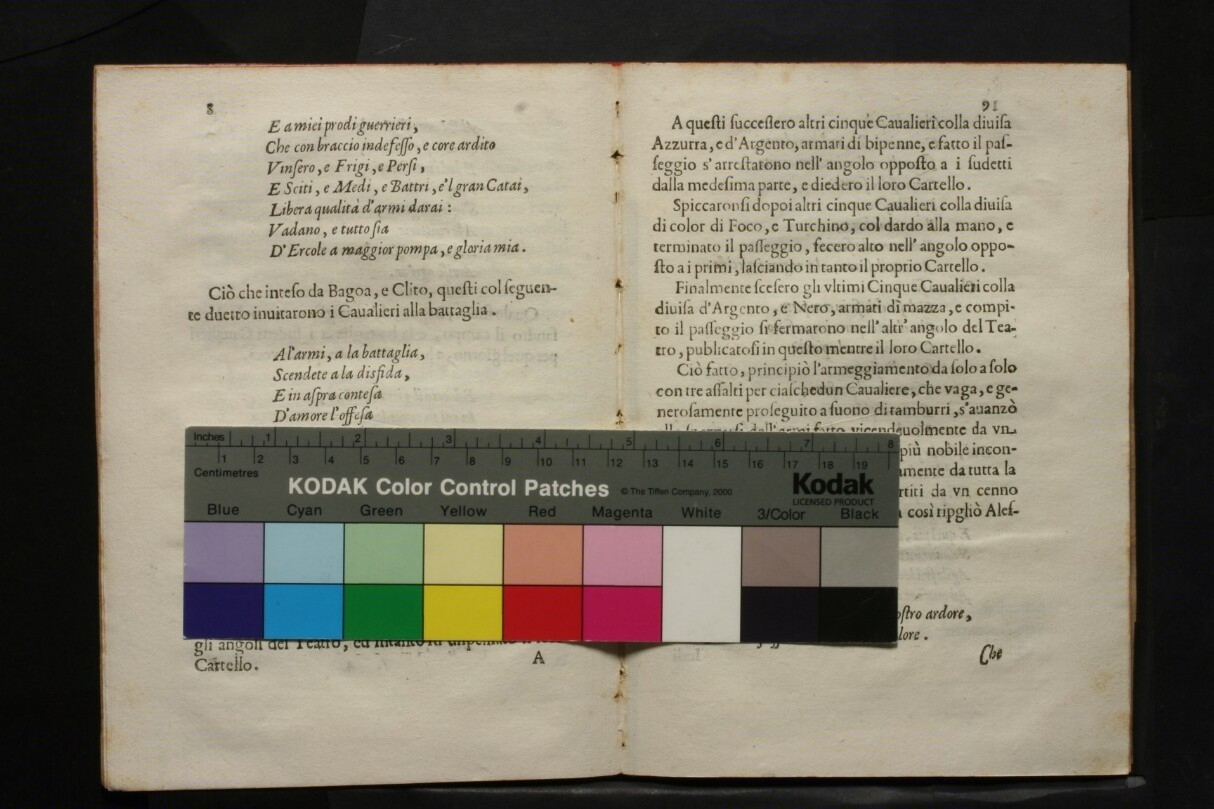 8
E a miei prodi guerrieri,
Che con braccio indefeſſo, e core ardito
Vinſero, e Frigi, e Perſi,
E Sciti, e Medi, e Battri, e'l gran Catai,
Libera qualità d'armi darai:
Vadano, e tutto ſia
D'Ercole a maggior pompa, e gloria mia.
Ciò che inteſo da Bagoa, e Clito, queſti col ſeguen-
te duetto inuitarono i Caualieri alla battaglia.
A l'armi, a la battaglia,
Scendete a la disfida,
E in aſpra conteſa
D'amore l'offeſa
gli angoli del Teatro, ed
Cartello.
A
91
A queſti ſucceſſero altri cinque Caualieri colla diuiſa
Azzurra, e d'Argento, armati di bipenne, e fatto il paſ-
ſeggio s'arreſtarono nell'angolo oppoſto a i ſudetti
dalla medeſima parte, e diedero il loro Cartello.
Spiccaronſi dopoi altri cinque Caualieri colla diuiſa
di color di Foco, e Turchino, col dardo alla mano, e
terminato il paſſeggio, fecero alto nell'angolo oppo-
ſto a i primi, laſciando in tanto il proprio Cartello.
Finalmente ſceſero gli vltimi Cinque Caualieri colla
diuiſa d'Argento, e Nero, armati di mazza, e compi-
to il paſſeggio ſi fermarono nell'altr'angolo del Tea-
tro, publicatoſi in queſto mentre il loro Cartello.
Ciò fatto, principiò l'armeggiamento da ſolo a ſolo
con tre aſſalti per ciaſchedun Caualiere, che vaga, e ge-
neroſamente proſeguito a ſuono di tamburri, s'auanzò
dell'armi fatto vicendeuolmente da vn
più nobile incon-
amente da tutta la
rtiti da vn cenno
così ripgliò Aleſ-
oſtro ardore,
lore.
Che
Inches 1 2 3 4 5 6 7 8
Centimetres 1 2 3 4 5 6 7 8 9 10 11 12 13 14 15 16 17 18 19
KODAK Color Control Patches © The Tiffen Company, 2000 Kodak
LICENSED PRODUCT
Blue Cyan Green Yellow Red Magenta White 3/Color Black